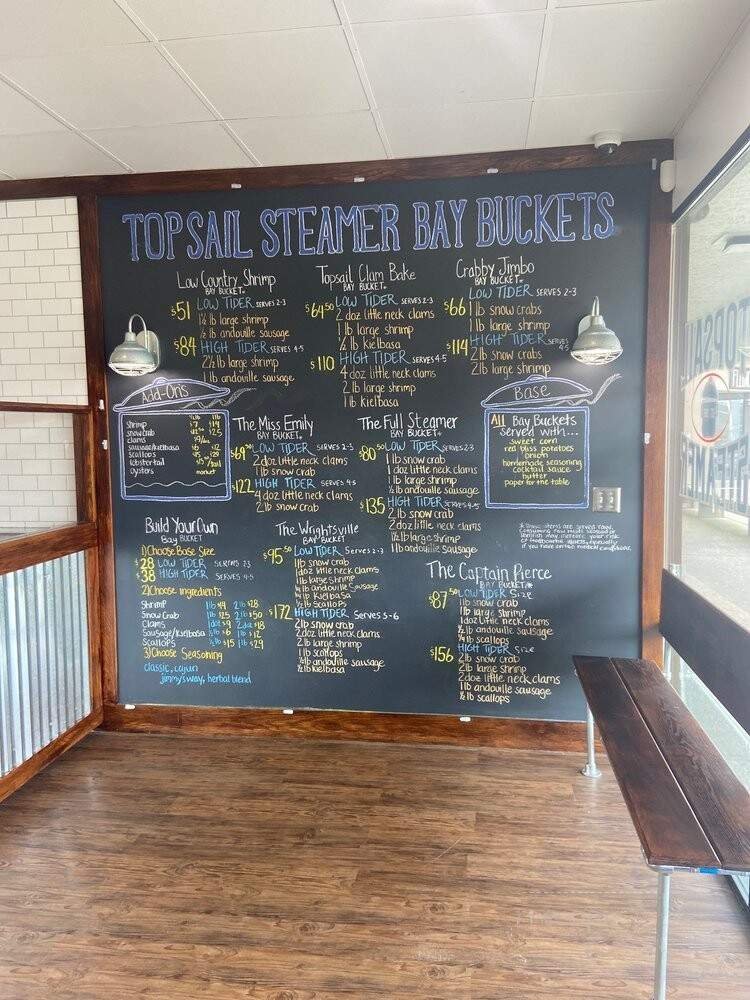 TOPSAIL STEAMER BAY BUCKETS
Low Country Shrimp
BAY BUCKET
$51 LOW TIDER SERVES 2-3
1½ lb large shrimp
½ lb andouille sausage
$84 HIGH TIDER SERVES 4-5
2½ lb large shrimp
1 lb andouille sausage
Topsail Clam Bake
BAY BUCKET
$64.50 LOW TIDER SERVES 2-3
2 doz little neck clams
1 lb large shrimp
½ lb kielbasa
$110 HIGH TIDER SERVES 4-5
4 doz little neck clams
2 lb large shrimp
1 lb kielbasa
Crabby Jimbo
BAY BUCKET
$66 LOW TIDER SERVES 2-3
1 lb snow crabs
1 lb large shrimp
$114 HIGH TIDER
2 lb snow crabs
2 lb large shrimp
Add-Ons
½ lb 1 lb
shrimp $7 $14
snow crab
clams
sausage/kielbasa
scallops
lobster tail
oysters market
The Miss Emily
BAY BUCKET
$69.50 LOW TIDER SERVES 2-3
2 doz little neck clams
1 lb snow crab
$122 HIGH TIDER SERVES 4-5
4 doz little neck clams
2 lb snow crab
The Full Steamer
BAY BUCKET
$80.50 LOW TIDER SERVES 2-3
1 lb snow crab
1 doz little neck clams
1 lb large shrimp
½ lb andouille sausage
$135 HIGH TIDER SERVES 4-5
2 lb snow crab
2 doz little neck clams
1½ lb large shrimp
1 lb andouille sausage
Base
ALL Bay Buckets
served with...
sweet corn
red bliss potatoes
onion
homemade seasoning
cocktail sauce
butter
paper for the table
*These items are served raw.
Consuming raw meats, seafood or
shellfish may increase your risk
of foodborne illness, especially
if you have certain medical conditions.
Build Your Own
BAY BUCKET
1) Choose Base Size
$28 LOW TIDER SERVES 2-3
$38 HIGH TIDER SERVES 4-5
2) Choose ingredients
Shrimp 1 lb $14 2 lb $28
Snow Crab 1 lb $25 2 lb $50
Clams 1 doz $9 2 doz $18
Sausage/Kielbasa ½ lb $6 1 lb $12
Scallops ½ lb $15 1 lb $29
3) Choose Seasoning
classic, cajun
jimmy's way, herbal blend
The Wrightsville
BAY BUCKET
$95.50 LOW TIDER Serves 2-3
1 lb snow crab
1 doz little neck clams
1 lb large shrimp
¼ lb andouille Sausage
¼ lb Kielbasa
½ lb Scallops
$172 HIGH TIDER Serves 5-6
2 lb snow crab
2 doz little neck clams
2 lb large shrimp
1 lb scallops
½ lb andouille sausage
½ lb kielbasa
The Captain Pierce
BAY BUCKET
$87.50 LOW TIDER Size
1 lb snow crab
1 lb large shrimp
1 doz little neck clams
½ lb andouille sausage
¼ lb scallops
$156 HIGH TIDER Size
2 lb snow crab
2 lb large shrimp
2 doz little neck clams
1 lb andouille sausage
½ lb scallops